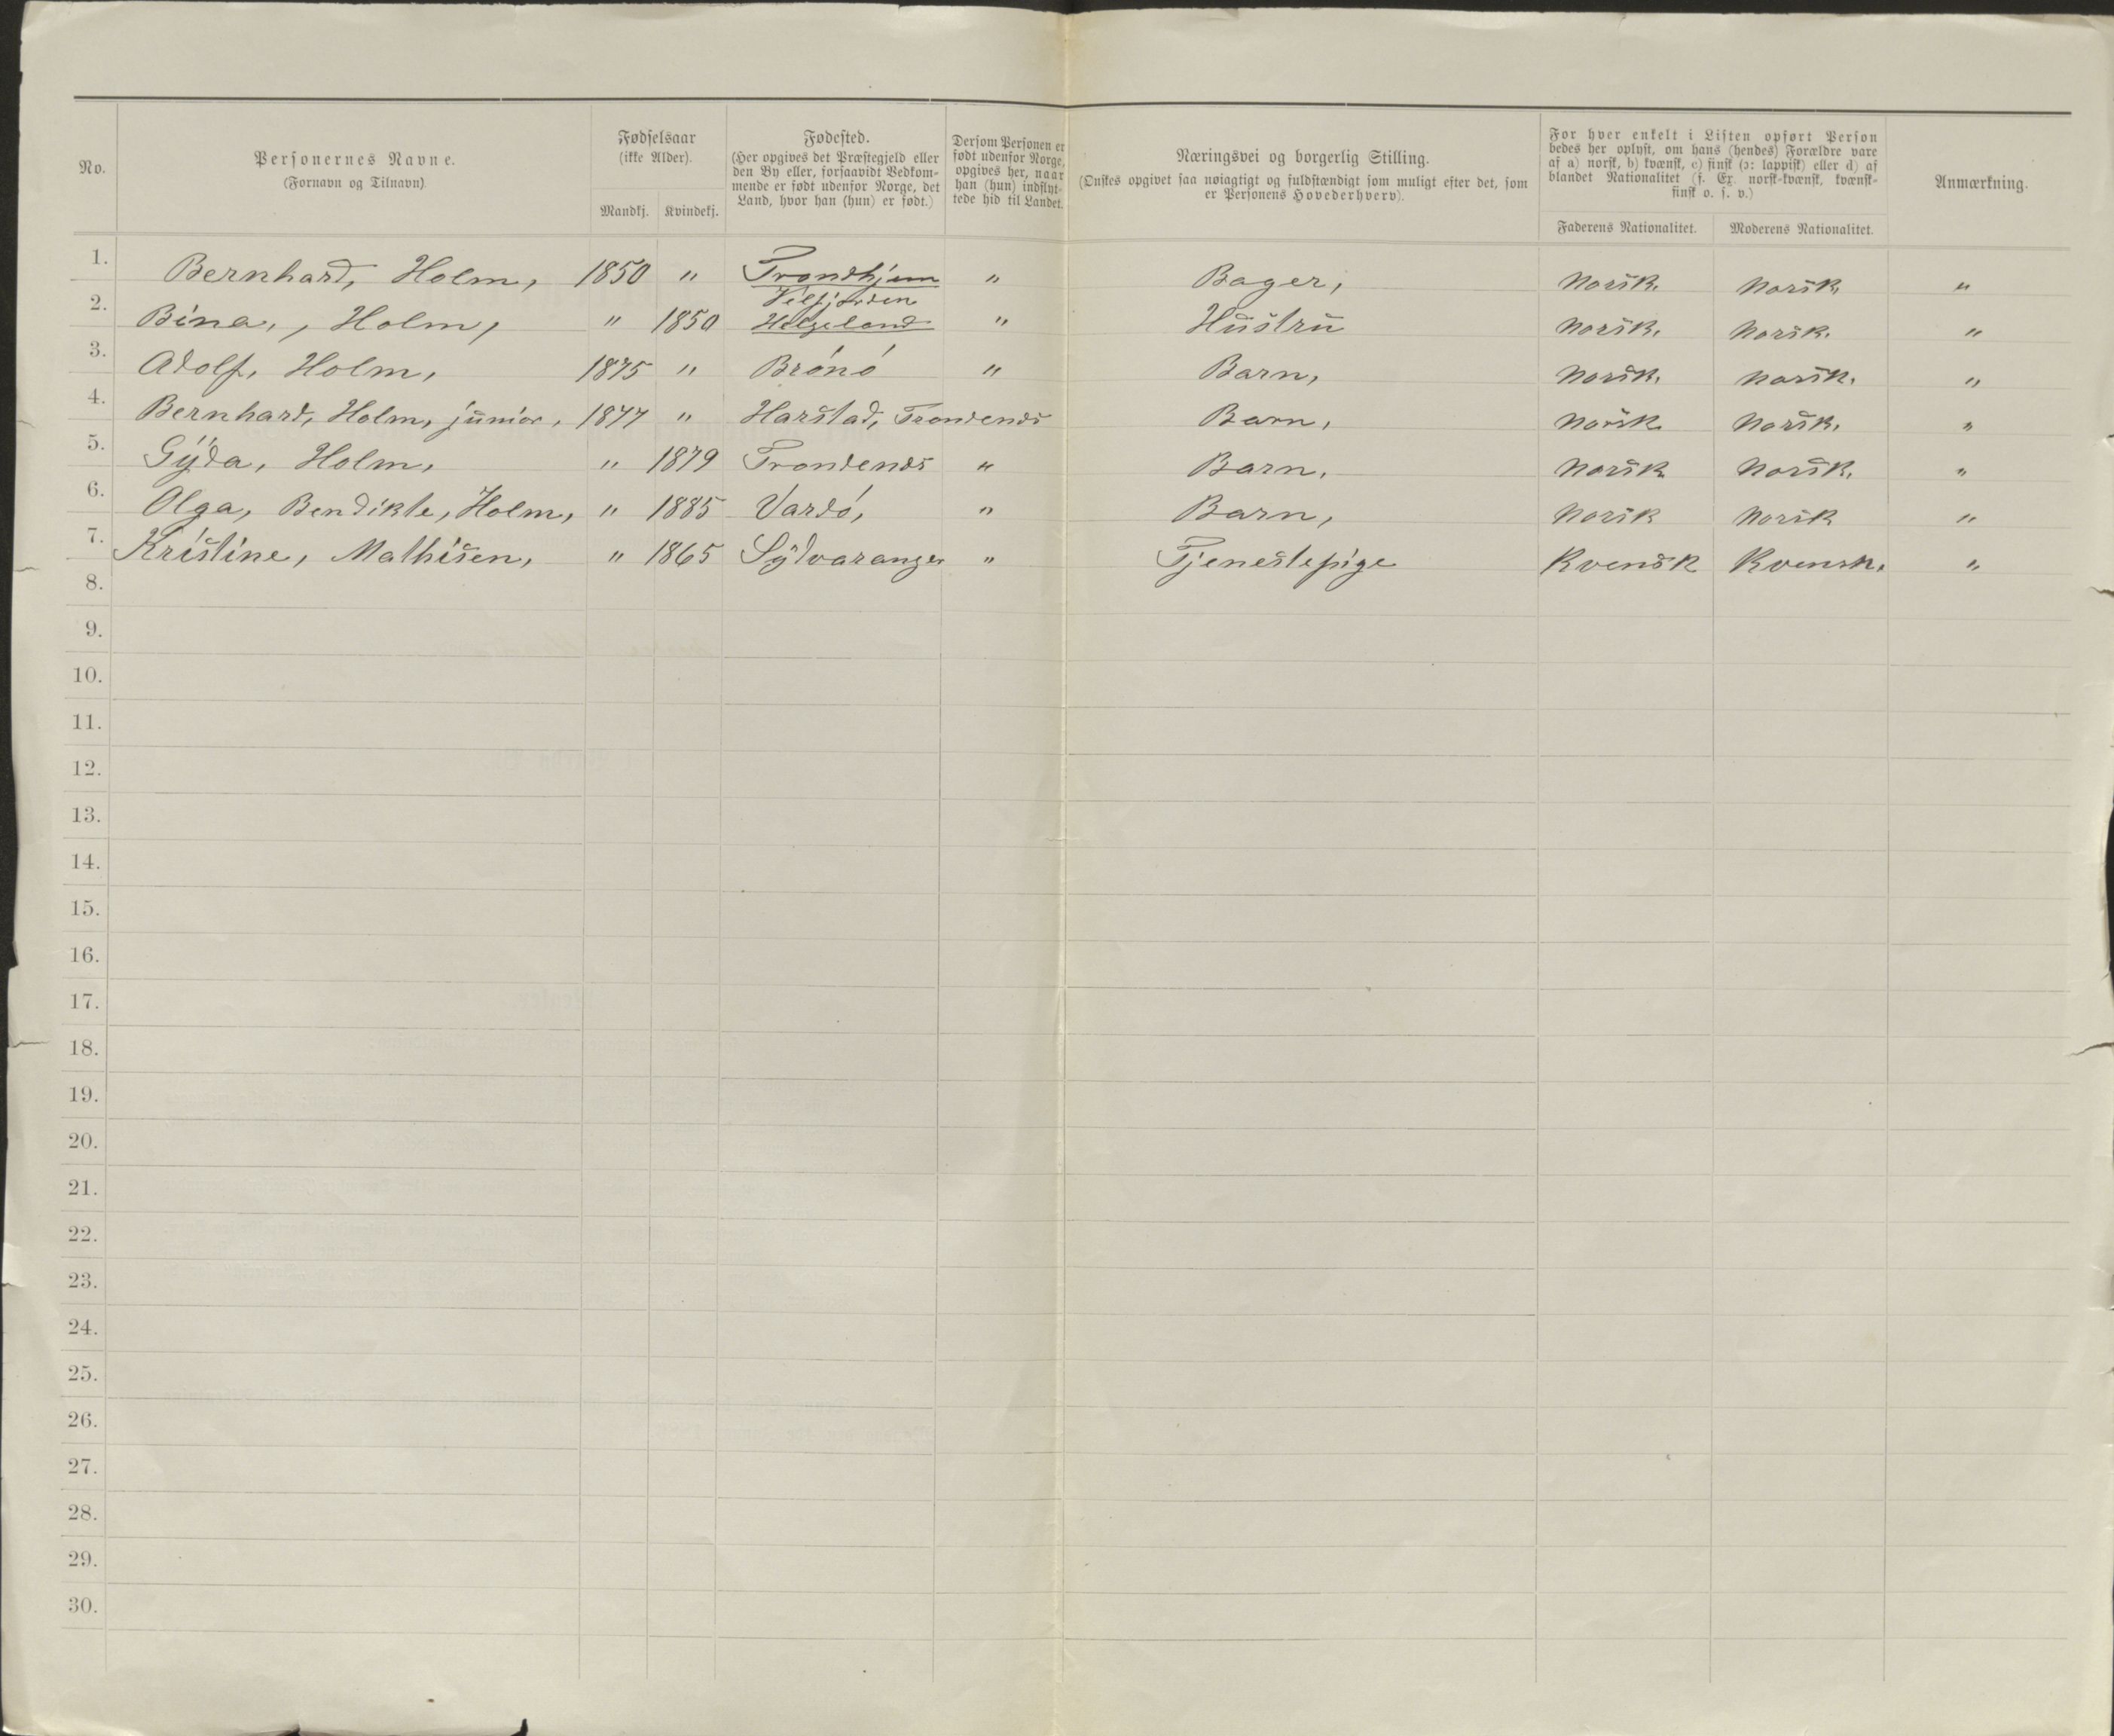 No.
Personernes Navne.
(Fornavn og Tilnavn)
Fødselsaar
(ikke Alder).
Mandkj. Kvindekj.
Fødested.
(Her opgives det Præstegjeld eller
den By eller, forsaavidt Vedkom-
mende er født udenfor Norge, det
Land, hvor han (hun) er født.)
Dersom Personen er
født udenfor Norge,
opgives her, naar
han (hun) indflyt-
tede hid til Landet.
Næringsvei og borgerlig Stilling.
(Ønskes opgivet saa nøiagtigt og fuldstændigt som muligt efter det, som
er Personens Hovederhverv).
For hver enkelt i Listen opført Person
bedes her oplyst, om hans (hendes) Forældre vare
af a) norsk, b) kvænsk, c) finsk (ɔ: lappisk) eller d) af
blandet Nationalitet (f. Ex. norsk-kvænsk, kvænsk-
finsk o. s. v.)
Faderens Nationalitet. Moderens Nationalitet.
Anmærkning.
1. Bernhard, Holm, 1850 " Trondhjem " Bager, Norsk. Norsk. "
Velfjorden
2. Bina, , Holm, " 1850 Helgeland " Hustru Norsk. Norsk. "
3. Adolf, Holm, 1875 " Brónó " Barn, Norsk. Norsk. "
4. Bernhard, Holm, junior, 1877 " Harstad, Trondenes Barn, Norsk Norsk. "
5. Gyda, Holm, " 1879 Trondenes " Barn, Norsk Norsk. "
6. Olga, Bendikte, Holm, " 1885 Vardó, " Barn, Norsk Norsk "
7. Kristine, Mathisen, " 1865 Sydvaranger " Tjenestepige Kvensk Kvensk. "
8.
9.
10.
11.
12.
13.
14.
15.
16.
17.
18.
19.
20.
21.
22.
23.
24.
25.
26.
27.
28.
29.
30.